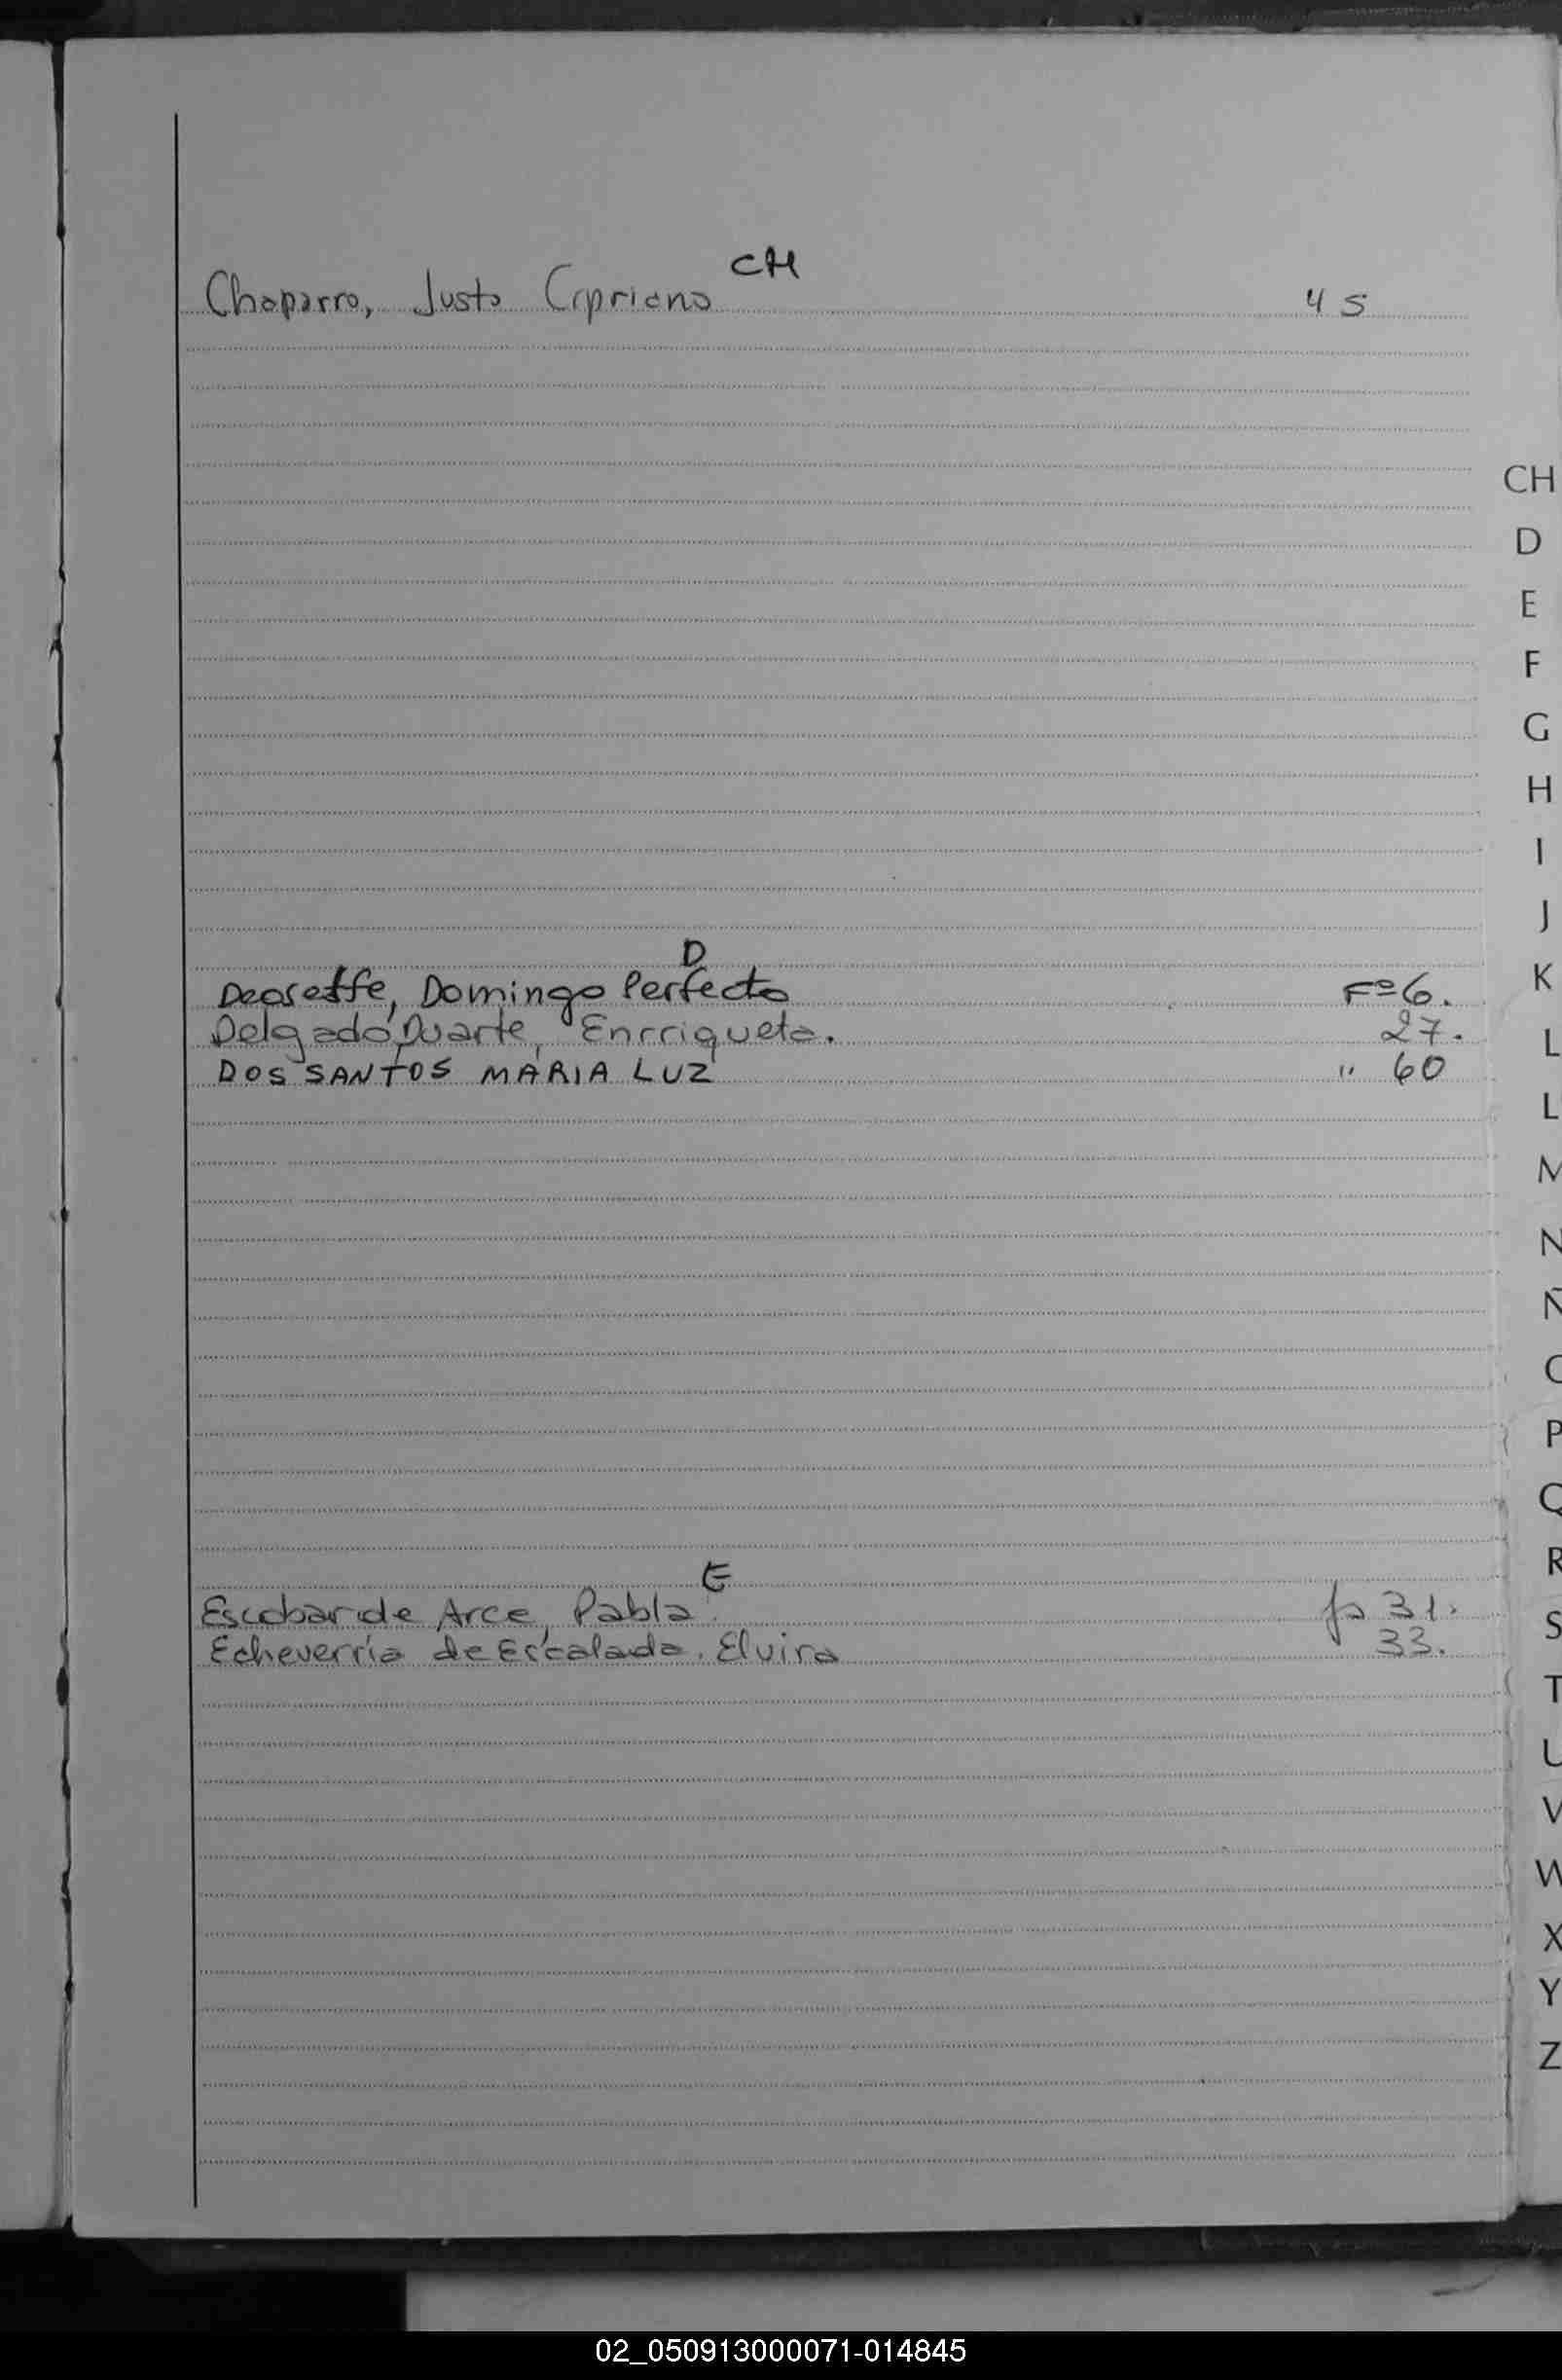 CH
Chaparro, Justo Cipriano 45
CH
D
E
F
G
H
I
J
K
L
L
M
N
Ñ
O
P
Q
R
S
T
U
V
W
X
Y
Z
D
Domingo Perfecto Fº 6.
Delgado Duarte, Enrriqueta. 27.
DOS SANTOS MARIA LUZ " 60
E
Escobar de Arce, Pabla. fs 31.
Echeverría de Escalada. Elvira 33.
02_050913000071-014845